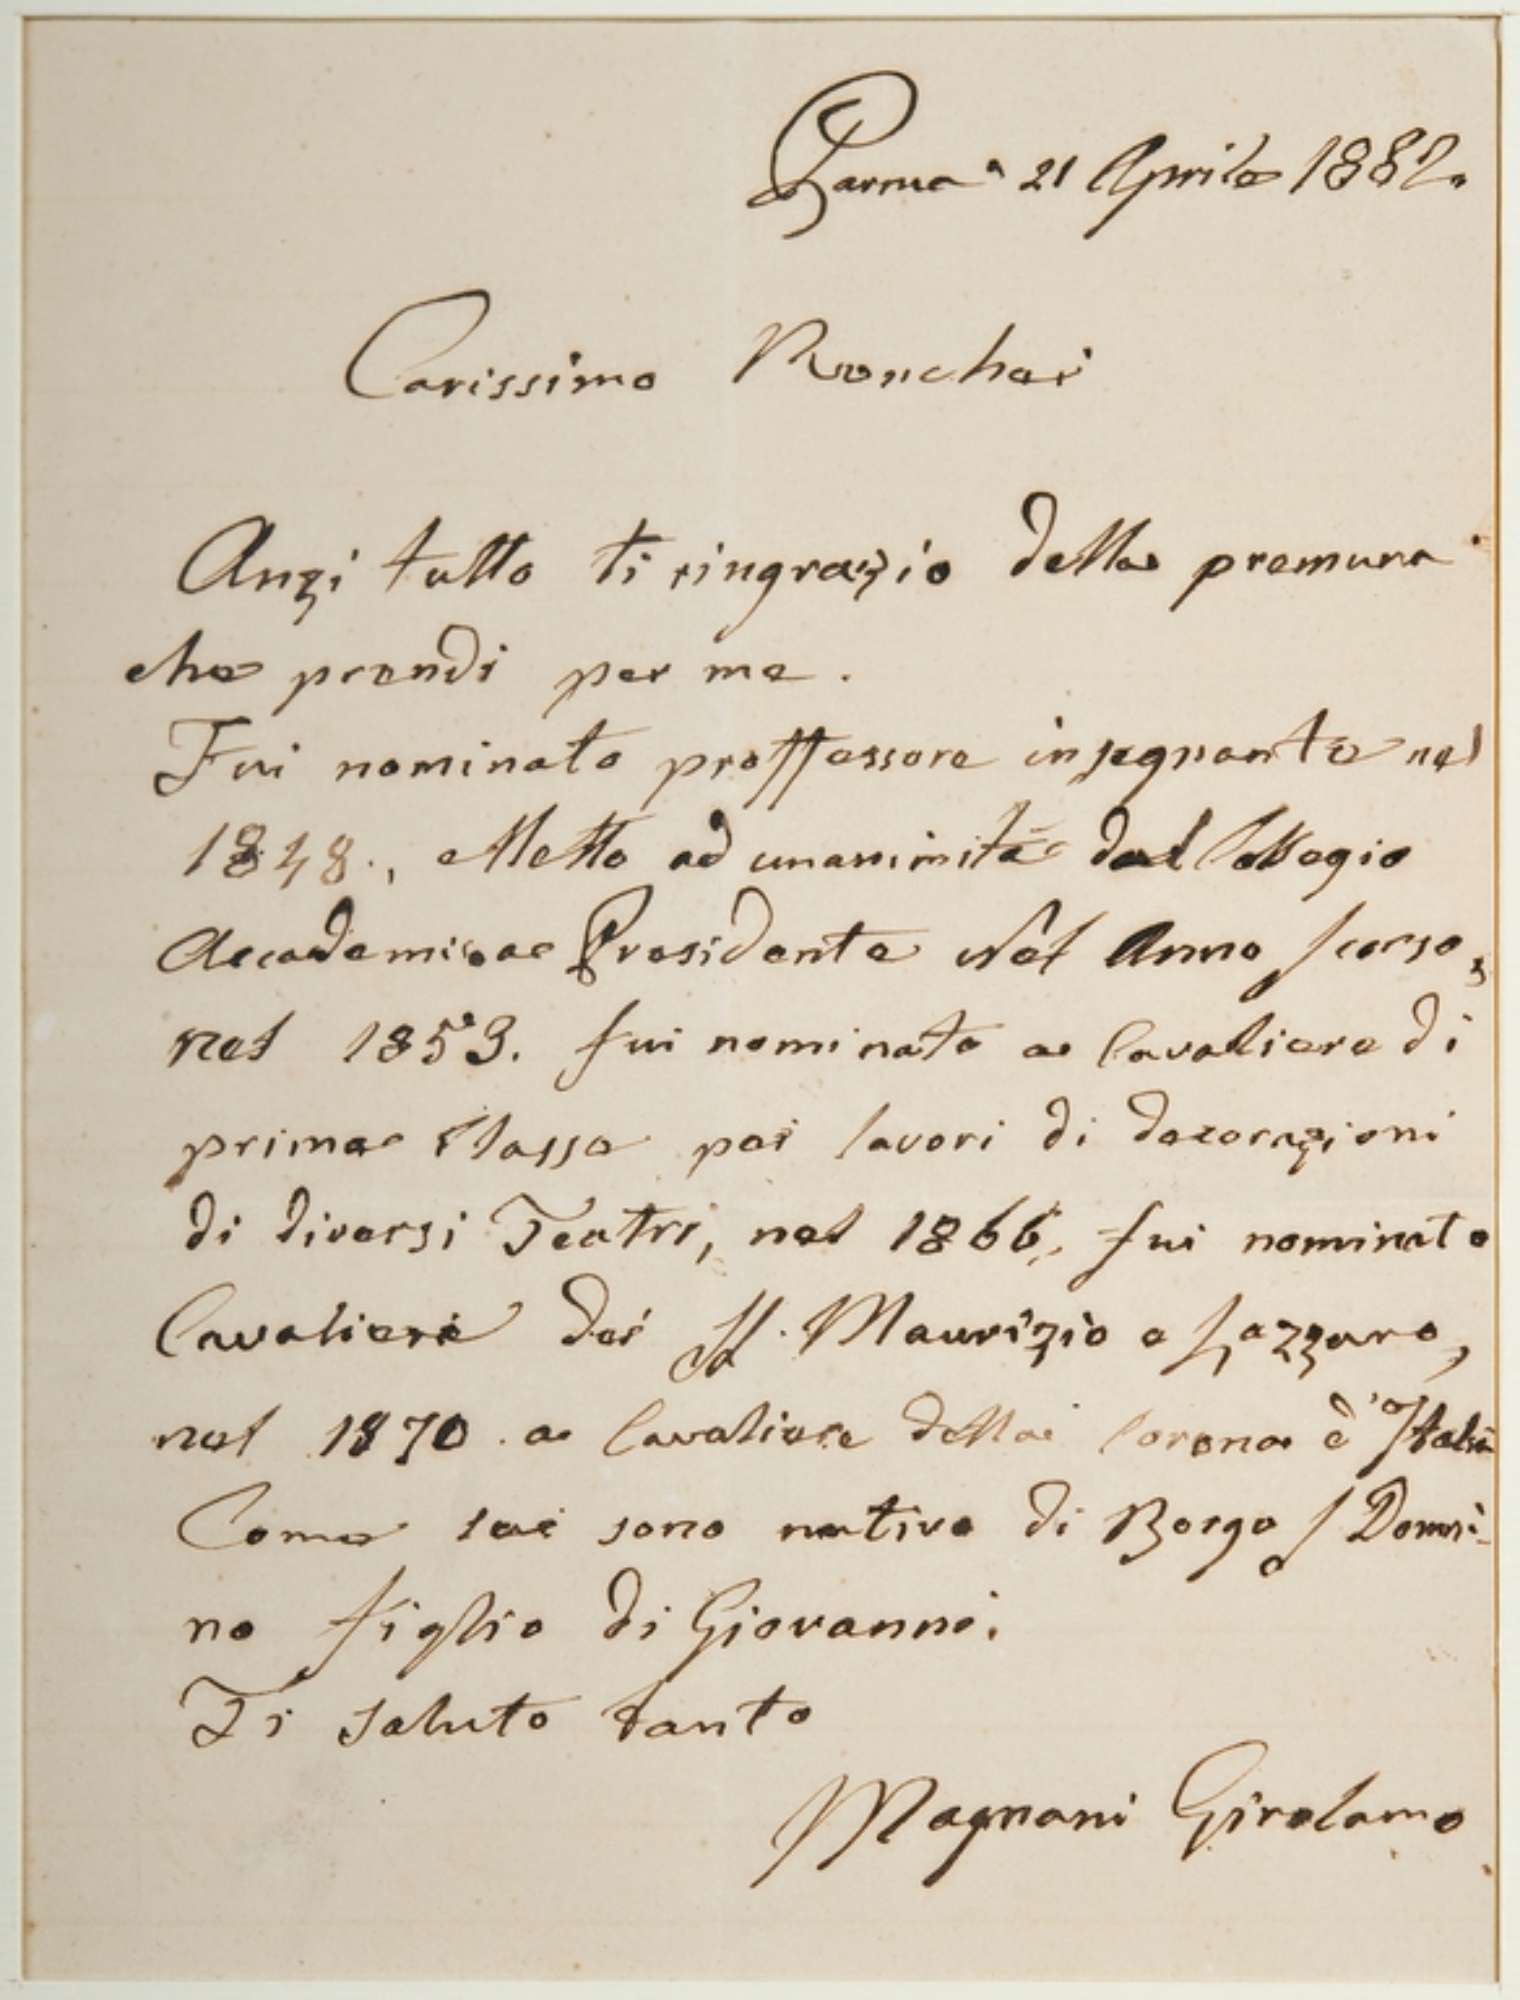 Parma 21 Aprile 1882.
Carissimo Ronchei
Anzi tutto ti ringrazio della premura
che prendi per me.
Fui nominato proffessore insegnante nel
1848., elletto ad unanimità dal Collegio
Accademico Presidente Nel Anno scorso,
nel 1853. fui nominato a Cavaliere di
prima Classe pei lavori di decorazioni
di diversi Teatri, nel 1866, fui nominato
Cavaliere dei SS. Maurizio e Lazzaro,
nel 1870 a Cavaliere della Corona d'Italia
Come sai sono nativo di Borgo S Donni-
no figlio di Giovanni.
Ti saluto tanto
Magnani Girolamo